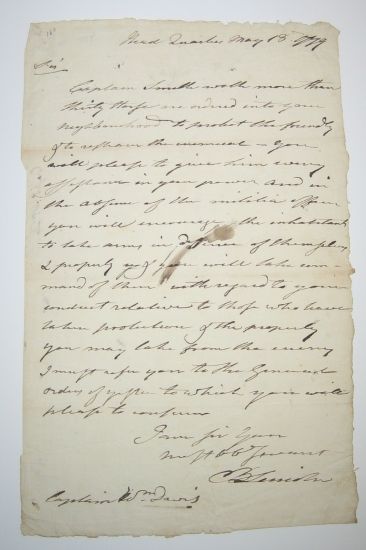 Head Quarters May 13 1779
Sir
Captain Smith with more than
thirty horse are ordered into your
Neighbourhood to protect the friendly
& to restrain the inimical – You
will please to give him every
assistance in your power and in
the absence of the militia officers
you will encourage the inhabitants
to take arms in defence of themselves
& property & you will take com
mand of them with regard to your
conduct relative to those who have
taken protection & the property
you may take from the enemy
I must refer you to the General
orders of to which you will
please to conform
I am Sir Your
most Ob Servant
B Lincoln
Captain Wm Davis